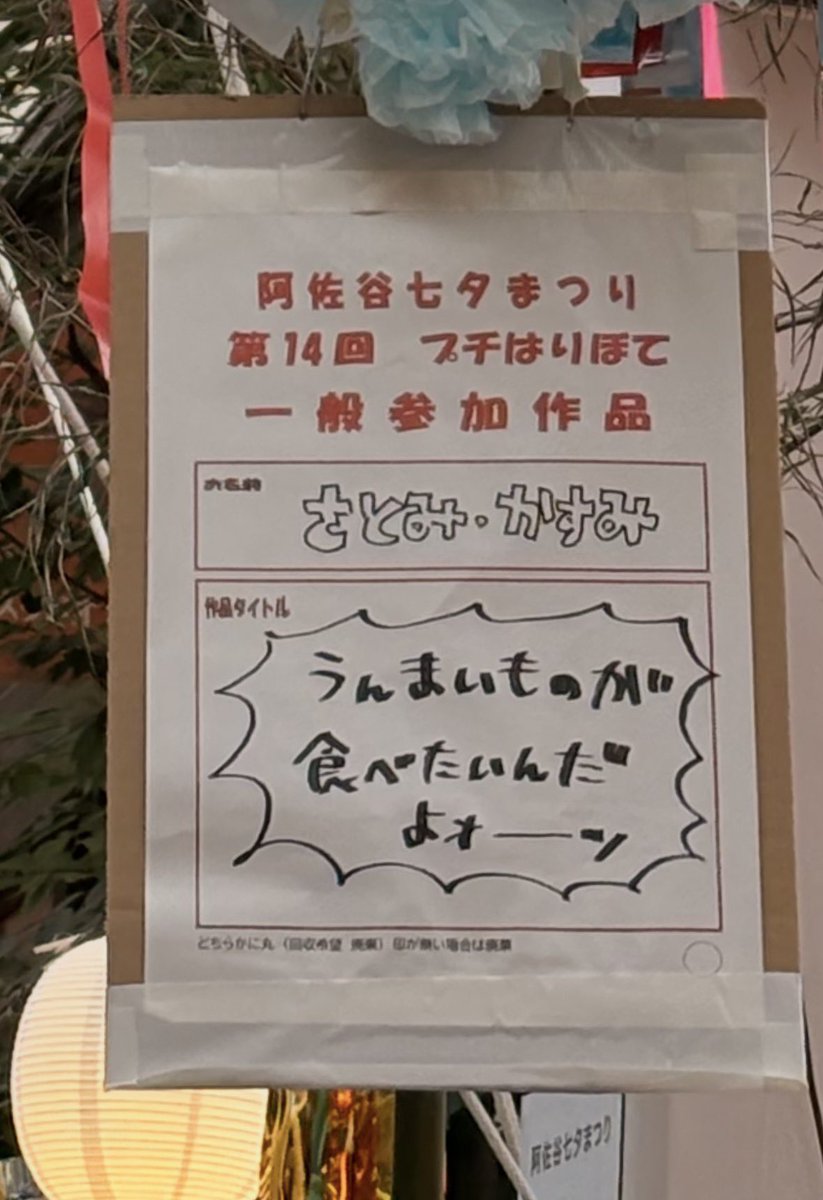 阿佐谷七夕まつり
第14回 プチはりぼて
一般参加作品
お名前
さとみ・かすみ
作品タイトル
うんまいものが
食べたいんだ
よォーッ
どちらかに丸(回収希望 廃棄)印が無い場合は廃棄
阿佐谷七夕まつり